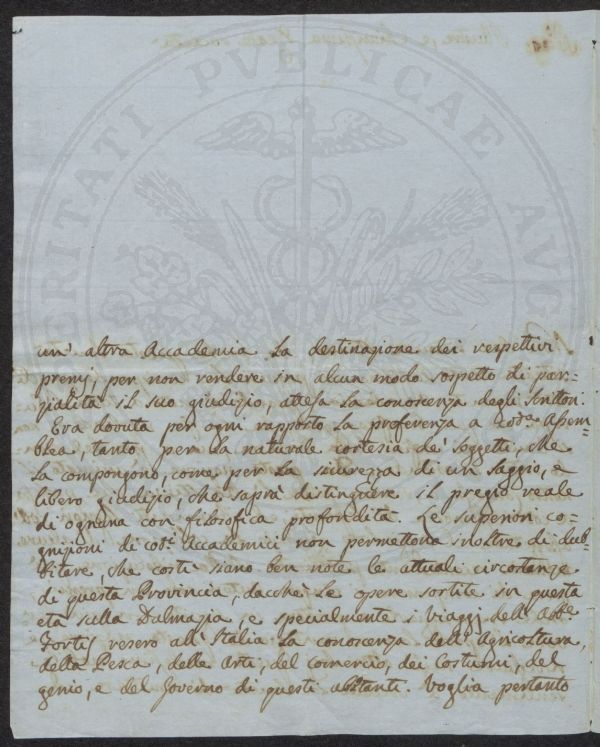 PROSPERITATI PVBLICAE AVG
un' altra Accademia la destinazione dei respettivi
premj, per non rendere in alcun modo sospetto di par=
zialità il suo giudizio, attesa la conoscenza degli Scrittori.
Era dovuta per ogni rapporto la preferenza a cod.a Assem=
blea, tanto per la naturale cortesia de' Soggetti, che
la compongono, come per la sicurezza di un saggio, e
libero giudizio, che saprà distinguere il pregio reale
di ognuna con filosofica profondità. Le superiori co=
gnizioni di cod.i Accademici non permettono inoltre di dub=
bitare, che costì siano ben note le attuali circostanze
di questa Provincia, dacchè le opere sortite in questa
età sulla Dalmazia, e specialmente i viaggi dell' Ab.e
Fortis resero all' Italia la conoscenza dell' Agricoltura,
della Pesca, delle Arti, del comercio, dei Costumi, del
genio, e del Governo di questi abitanti. Voglia pertanto